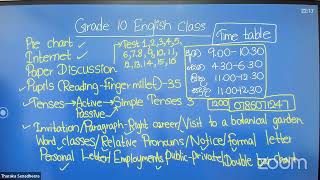 22:13
Grade 10 English Class
Time table
Pie chart
Test 1,2,3,4,5,
6,7,8,9,10,11,
12,13,14,15,16
Internet
Paper Discussion
9.00-10.30
4.30-6.30
11.00-12.30
11.00-12.30
Pupils (Reading-finger millet)-35
Tenses → Active → Simple Tenses 3
Passive
1200
0786071247
Invitation/Paragraph-Right career/Visit to a botanical garden
Word classes/Relative Pronouns/Notice/formal letter
Personal Letter/Employments Public-Private/Double bar chart
zoom
Tharuka Senadheera